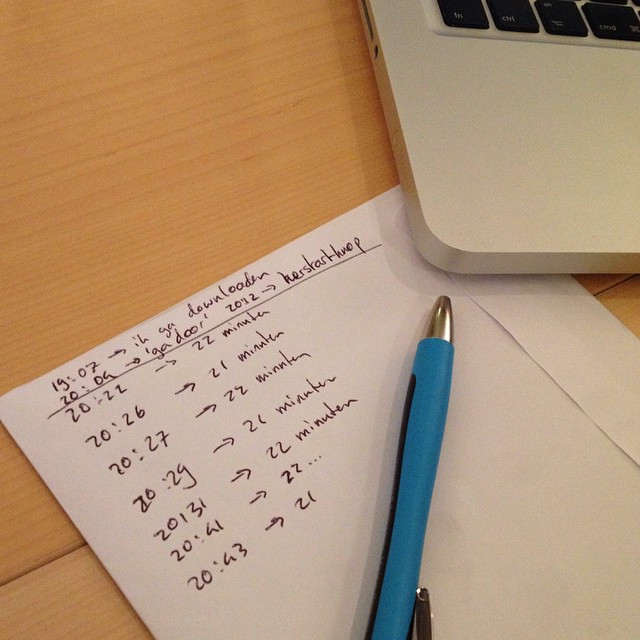 fn ctrl alt cmd
19:07 → ik ga downloaden
20:09 → 'ga door' 2012 → herstartknop
20:22 → 22 minuten
20:26 → 21 minuten
20:27 → 22 minuten
20:29 → 21 minuten
20:31 → 22 minuten
20:41 → 22...
20:43 → 21